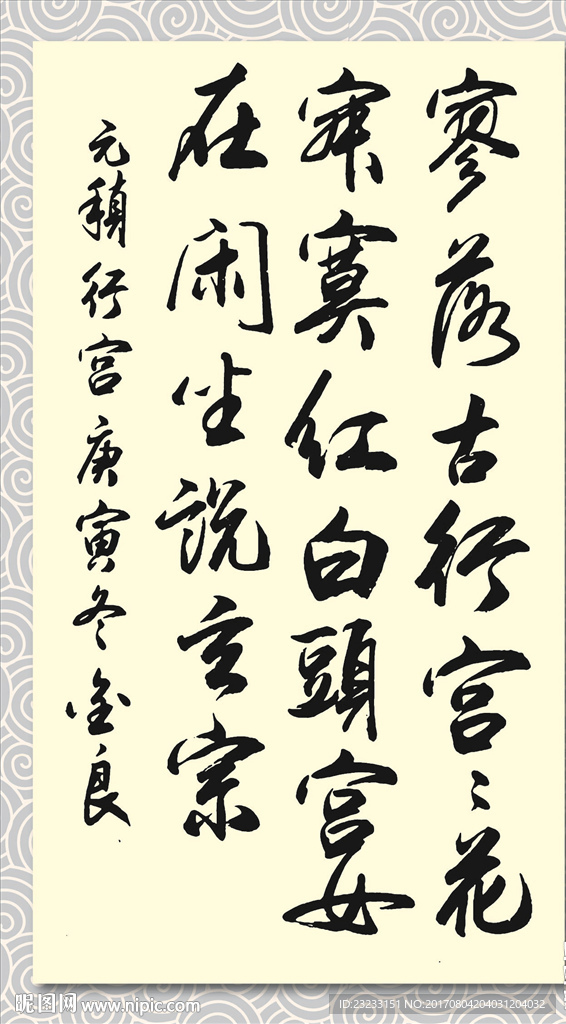 寥落古行宫〻花
寂寞红白頭宫女
在闲坐说玄宗
元稹行宫庚寅冬金良
昵图网 www.nipic.com
ID:23233151 NO:20170804204031204032